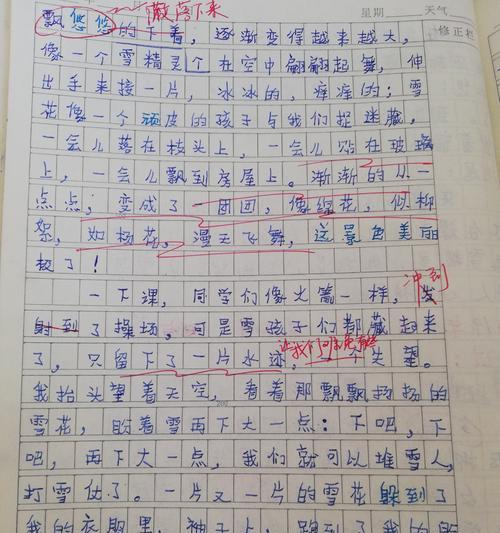 散落下来
星期 天气
修正栏
飘悠悠的下着，逐渐变得越来越大，
像一个雪精灵个在空中翩翩起舞，伸
出手来接一片，冰冰的，痒痒的；雪
花像一个顽皮的孩子与我们捉迷藏，
一会儿落在枝头上，一会儿贴在玻璃
上，一会儿飘到房屋上。渐渐的从一
点点，变成了一团团，像绵花，似柳
絮，如杨花，漫天飞舞，这景色美丽
极了！
冲到
一下课，同学们像火箭一样，发
射到了操场。可是雪孩子们都藏起来
让我们
了，只留下了一片水迹，一个失望。
我抬头望着天空，看着那飘飘扬扬的
雪花，盼着雪再下大一点：下吧，下
吧，再下大一点，我们就可以堆雪人，
打雪仗了。一片又一片的雪花躲到了
我的衣服里，袖子上，跑到了我的